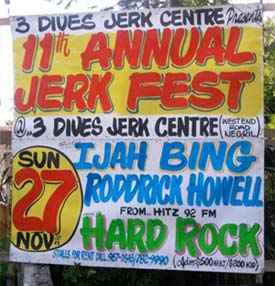 3 DIVES JERK CENTRE Presents
11th ANNUAL
JERK FEST
@...3 DIVES JERK CENTRE (WEST END ROAD NEGRIL)
SUN 27 NOV
IJAH BING
RODDRICK HOWELL
FROM.. HITZ 92 FM
HARD ROCK
STALLS FOR RENT CALL